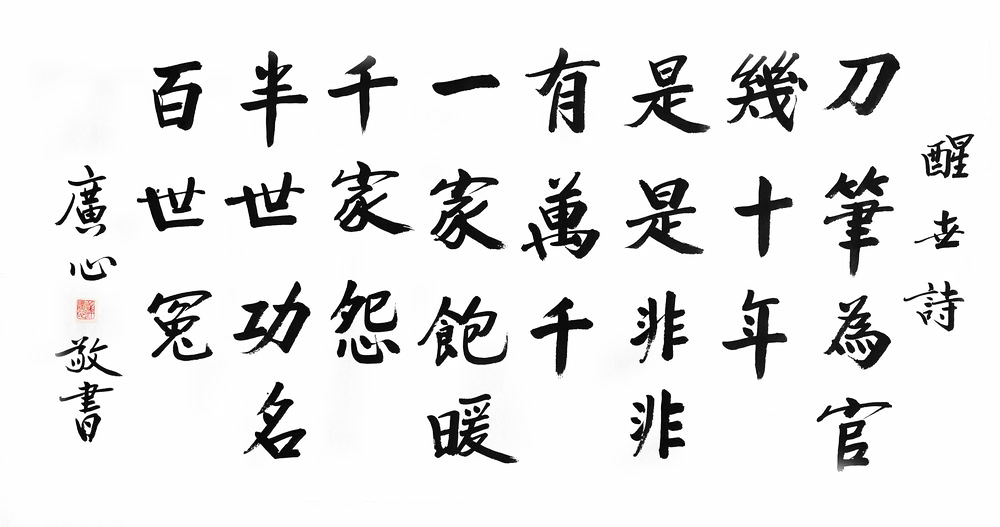 醒世詩
刀筆為官
幾十年
是是非非
有萬千
一家飽暖
千家怨
半世功名
百世冤
廣心敬書